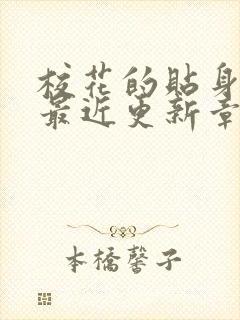 校花的贴身
最近更新章
本橋馨子